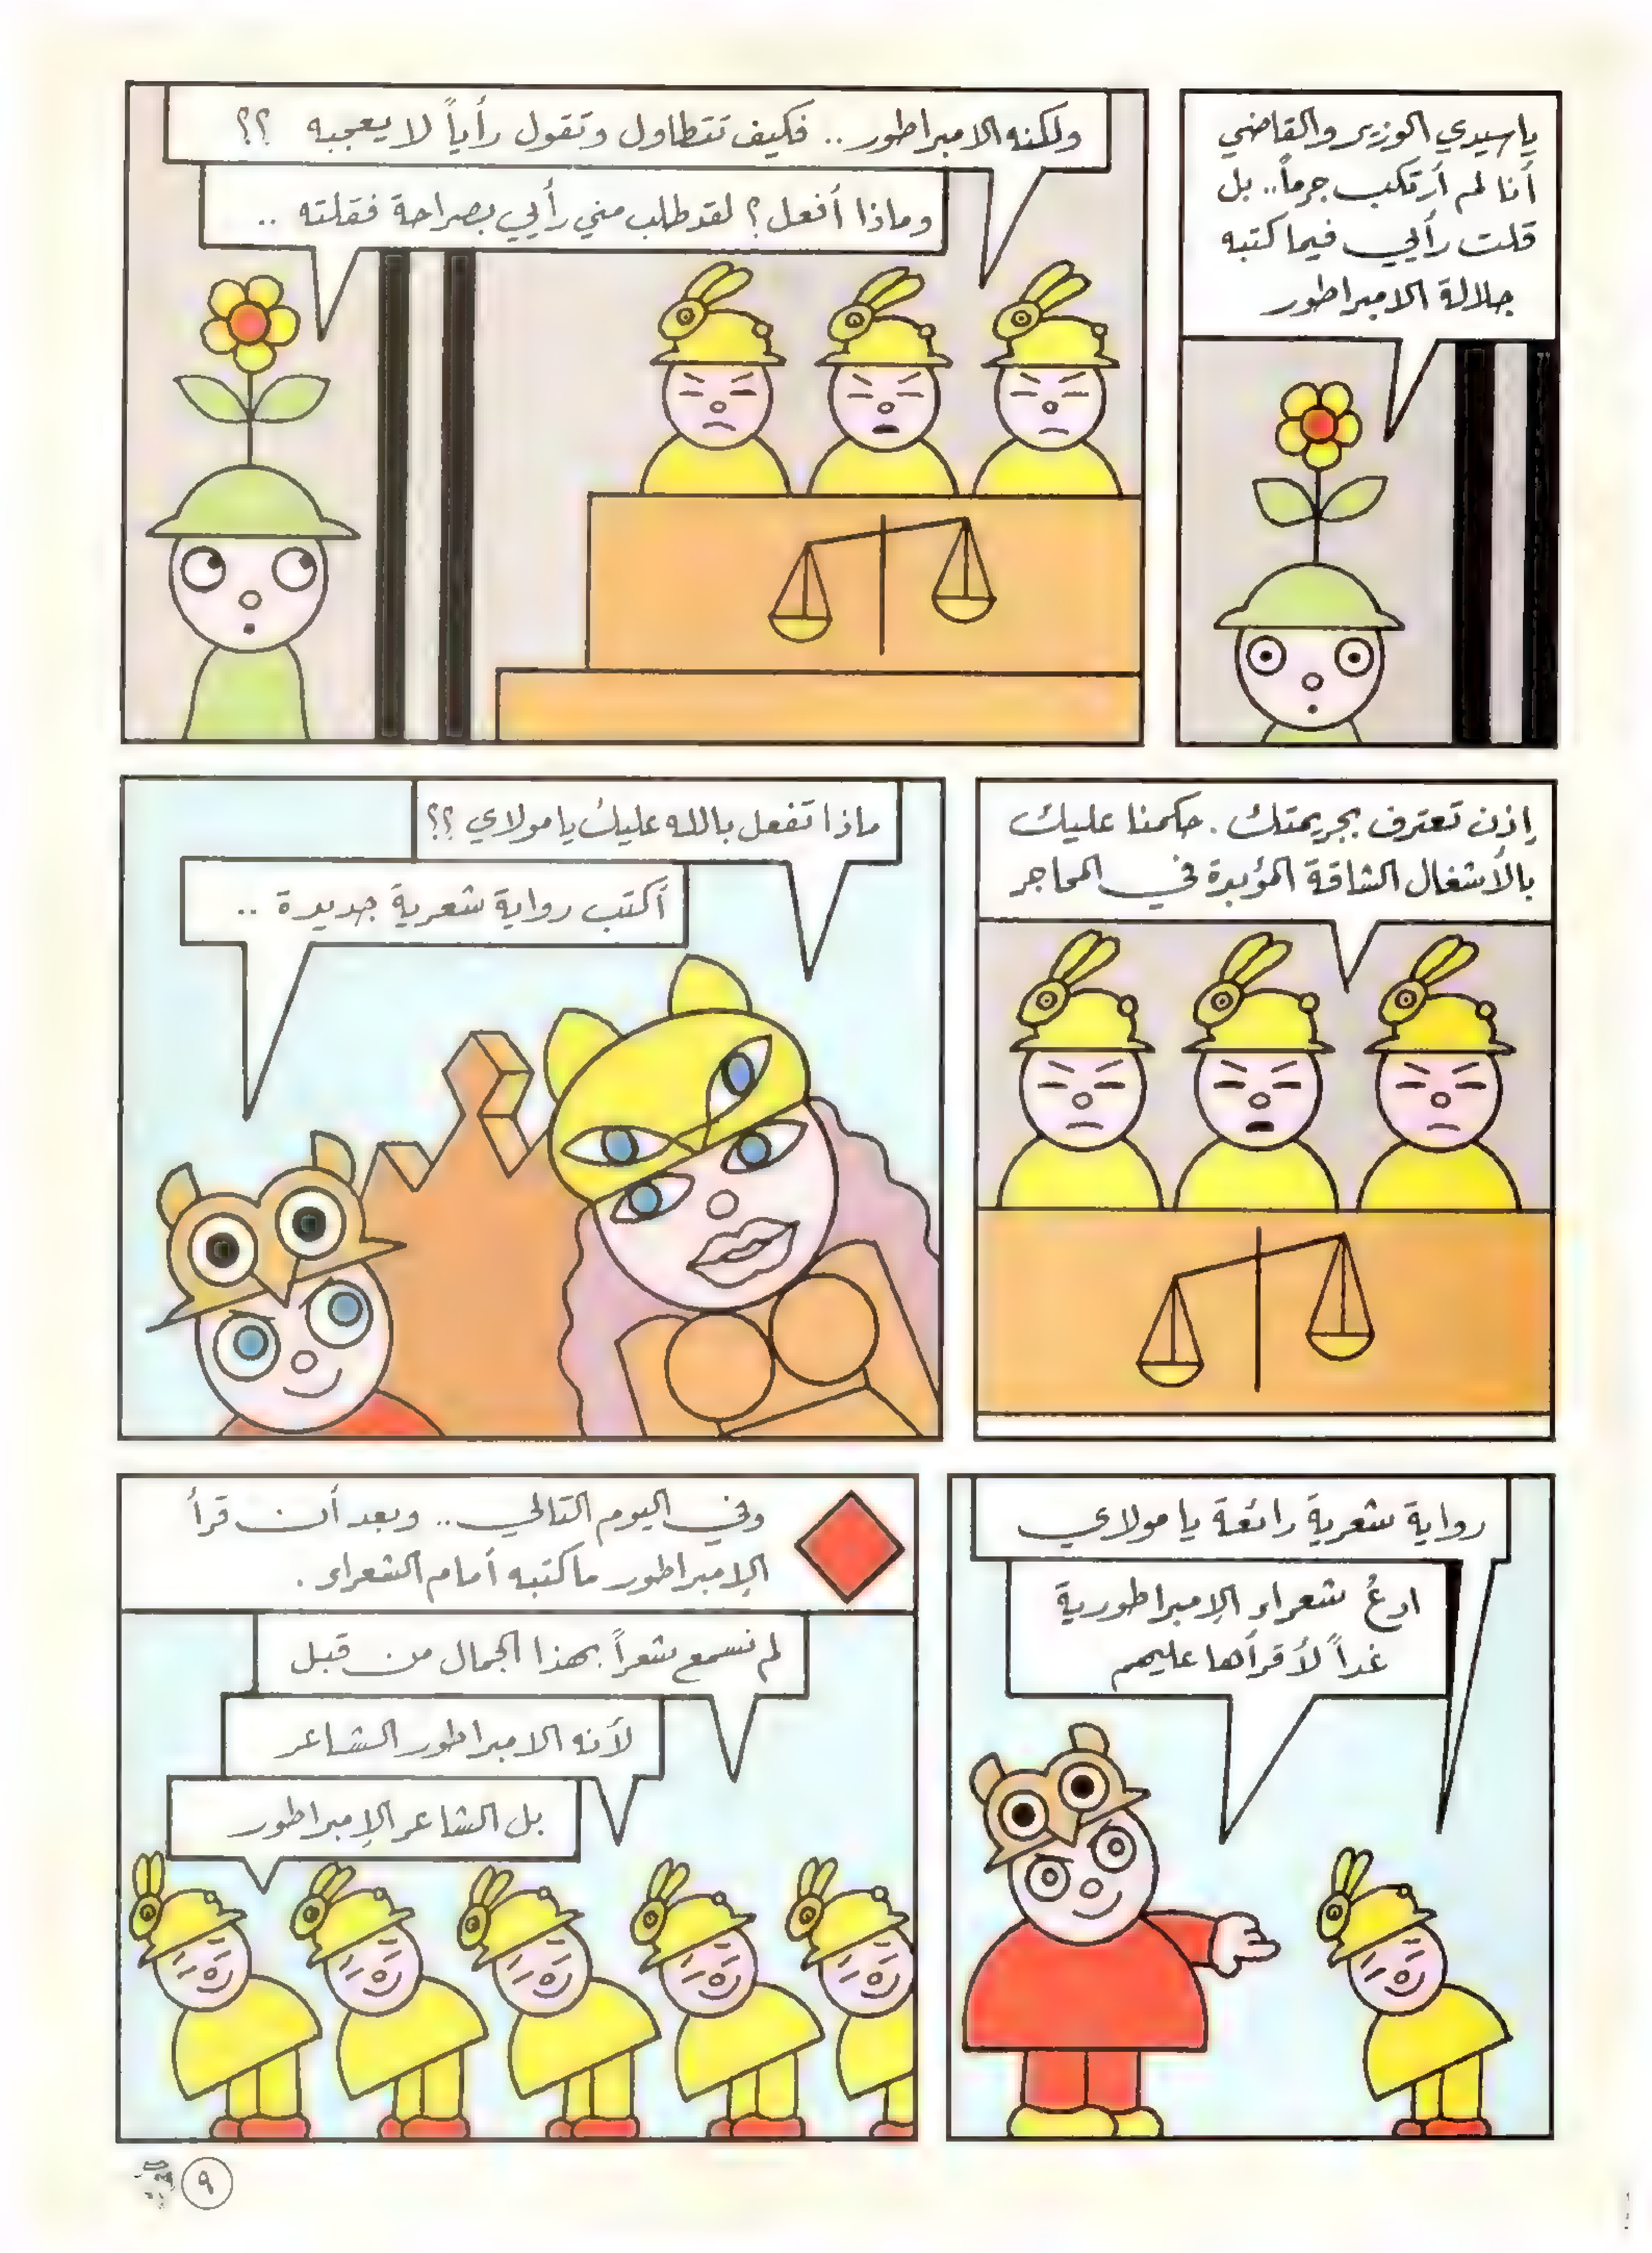 ياسيدي الوزير والقاضي
أنا لم أرتكب جرماً.. بل
قلت رأيي فيما كتبه
جلالة الامبراطور
ولكنه الامبراطور .. فكيف تتطاول وتقول رأياً لا يعجبه ؟؟
وماذا أفعل؟ لقد طلب مني رأيي بصراحة فقلته ..
إذن تعترف بجريمتك . حكمنا عليك
بالأشغال الشاقة المؤبدة في المحاجر
ماذا تفعل بالله عليك يا مولاي ؟؟
أكتب رواية شعرية جديدة ..
رواية شعرية رائعة يا مولاي
ادعُ شعراء الإمبراطورية
غداً لأقرأها عليهم
وفي اليوم التالي .. وبعد أن قرأ
الإمبراطور ماكتبه أمام الشعراء .
لم نسمع شعراً بهذا الجمال من قبل
لأنه الامبراطور الشاعر
بل الشاعر الإمبراطور
٩